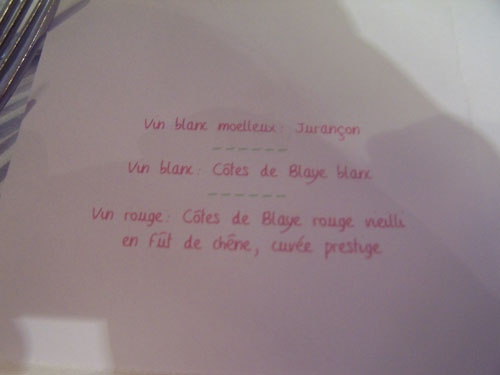 Vin blanc moelleux: Jurançon
Vin blanc: Côtes de Blaye blanc
Vin rouge: Côtes de Blaye rouge vieilli
en fût de chêne, cuvée prestige